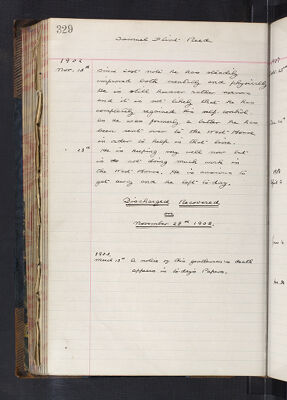 329
Samuel Flint Reed
1902
Nov. 18th Since last note he has steadily
improved both mentally and physically
He is still however rather nervous
and it is not likely that he has
completely regained his self-control
as he was formerly a letter he has
been sent over to the West House
in order to help in that house.
" 28th He is keeping very well now but
is do not doing much work in
the West House. He is anxious to
get away and he left to-day.
Discharged Recovered
November 28th 1902.
March 13th A notice of this gentleman's death
appears in to-day's Papers.